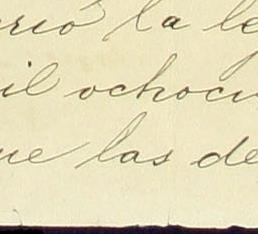 rió la le
il ochoci
ue las de